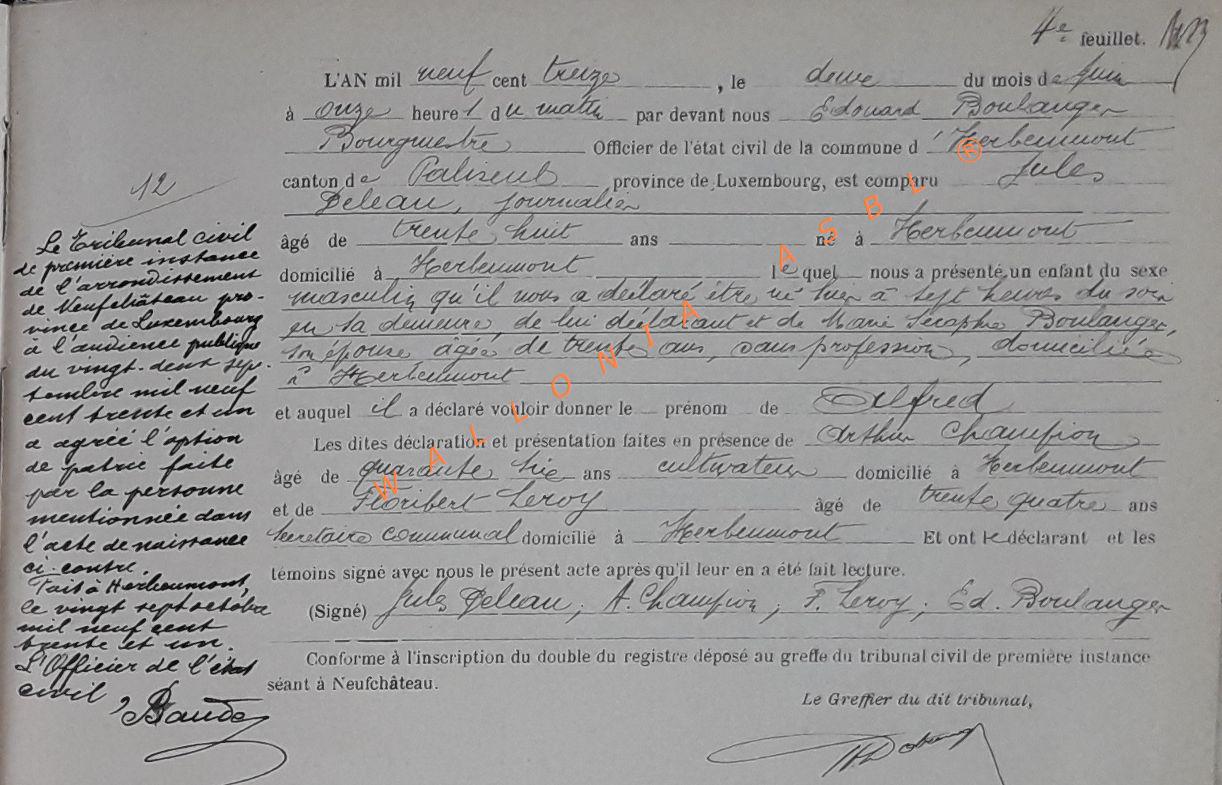 4e feuillet.
L'AN mil neuf cent treize, le deux du mois de Juin
à onze heures du matin par devant nous Edouard Boulanger
Bourgmestre Officier de l'état civil de la commune d'Herbeumont
canton de Paliseul province de Luxembourg, est comparu Jules
Deleau, journalier
âgé de trente huit ans né à Herbeumont
domicilié à Herbeumont lequel nous a présenté un enfant du sexe
masculin qu'il nous a déclaré être né hier à sept heures du soir
en sa demeure, de lui déclarant et de Marie Séraphine Boulanger,
son épouse âgée de trente ans, sans profession, domiciliée
à Herbeumont
et auquel il a déclaré vouloir donner le prénom de Alfred
Les dites déclaration et présentation faites en présence de Arthur Champion
âgé de quarante six ans cultivateur domicilié à Herbeumont
et de Floribert Leroy âgé de trente quatre ans
secrétaire communal domicilié à Herbeumont Et ont le déclarant et les
témoins signé avec nous le présent acte après qu'il leur en a été fait lecture.
(Signé) Jules Deleau, A. Champion, F. Leroy, Ed. Boulanger
Conforme à l'inscription du double du registre déposé au greffe du tribunal civil de première instance
séant à Neufchâteau.
Le Greffier du dit tribunal,
12
Le Tribunal civil
de première instance
de l'arrondissement
de Neufchâteau pro-
vince de Luxembourg
à l'audience publique
du vingt-deux sep-
tembre mil neuf
cent trente et un
a agréé l'option
de patrie faite
par la personne
mentionnée dans
l'acte de naissance
ci-contre.
Fait à Herbeumont,
le vingt sept octobre
mil neuf cent
trente et un.
L'Officier de l'état
civil,
WALLONIA ASBL ®